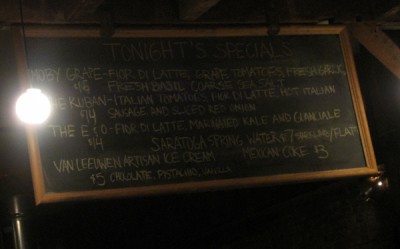 TONIGHT'S SPECIALS
MOBY GRAPE-FIOR DI LATTE, GRAPE TOMATOES, FRESH GARLIC,
$16 FRESH BASIL COARSE SEA SALT
THE RUBAN-ITALIAN TOMATOES FIOR DI LATTE HOT ITALIAN
$14 SAUSAGE AND SLICED RED ONION
THE E O-FIOR DI LATTE, MARINATED KALE AND GUANCIALE
$14 SARATOGA SPRING WATER $7 FLAT
VAN LEEUWEN ARTISAN ICE CREAM MEXICAN COKE $3
$5 CHOCOLATE, PISTACHIO, VANILLA